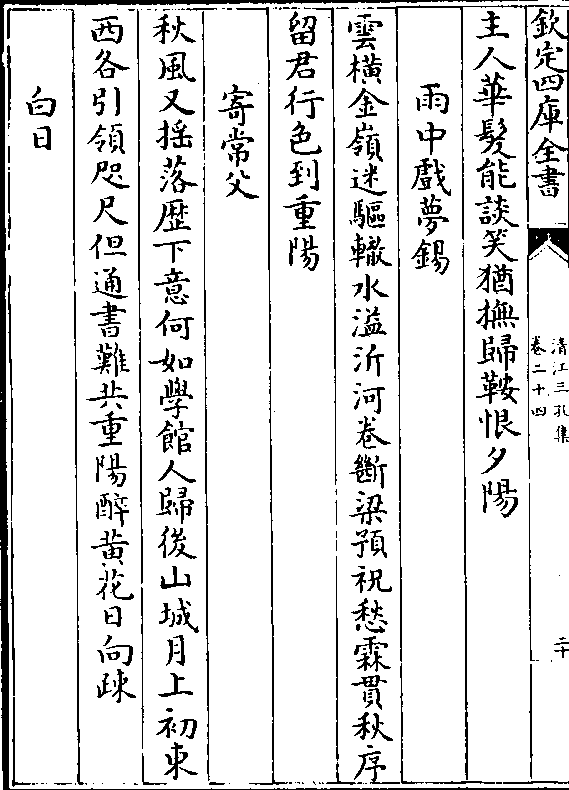 欽定四庫全書
清江三孔集
卷二十四
二十
主人華髮能談笑猶撫歸鞍恨夕陽
雨中戲夢錫
雲橫金嶺迷驅轍水溢沂河卷斷梁預祝愁霖貫秋序
留君行色到重陽
寄常父
秋風又揺落歴下意何如學館人歸後山城月上初東
西各引領咫尺但通書難共重陽醉黄花日向疎
白日